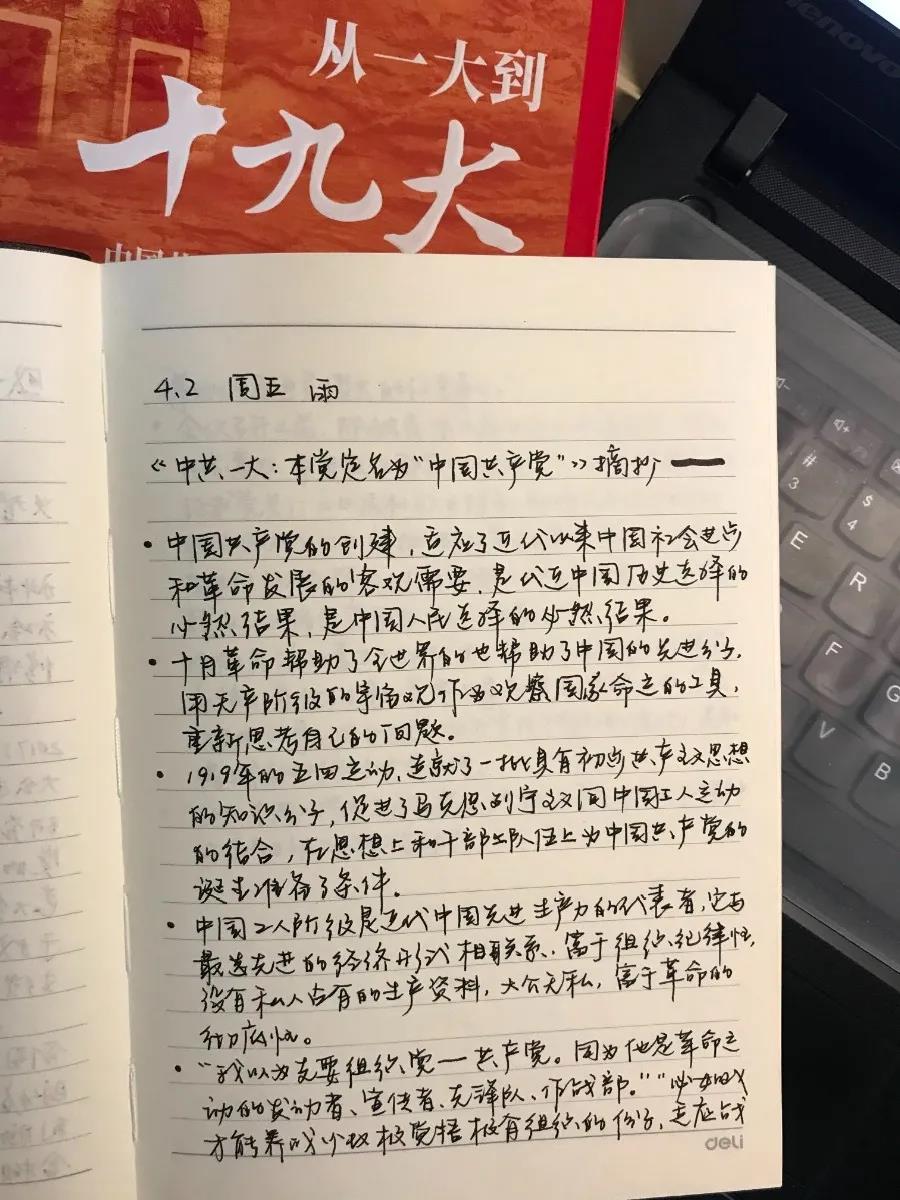 从一大到
十九大
lenovo
4.2 周五 雨
《中共一大：本党定名为"中国共产党"》摘抄 —
• 中国共产党的创建，适应了近代以来中国社会进步
和革命发展的客观需要，是代近中国历史选择的
必然结果，是中国人民选择的必然结果。
• 十月革命帮助了全世界的也帮助了中国的先进分子，
用无产阶级的宇宙观作为观察国家命运的工具，
重新思考自己的问题。
• 1919年的五四运动，造就了一批具有初步共产主义思想
的知识分子，促进了马克思列宁主义同中国工人运动
的结合，在思想上和干部队伍上为中国共产党的
诞生准备了条件。
• 中国工人阶级是近代中国先进生产力的代表者，它与
最先进的经济形式相联系，富于组织纪律性，
没有私人占有的生产资料，大公无私，富于革命的
彻底性。
• "我以为先要组织党—共产党。因为他是革命运
动的发动者、宣传者、先锋队、作战部。""必如此
才能养成少数极觉悟极有组织的份子，适应战
deli
#
3
$
4
E
R
F
G
V
B